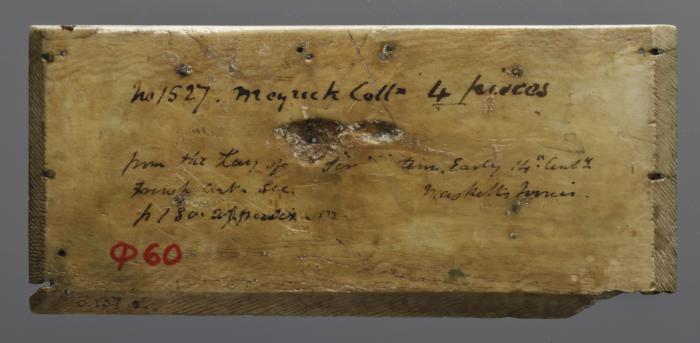 No 1527. Meyrick Colln 4 pieces
from the Lay of Early 14th Centy
French Art. See. Maskell's Ivories.
p 180. appendix
Φ60